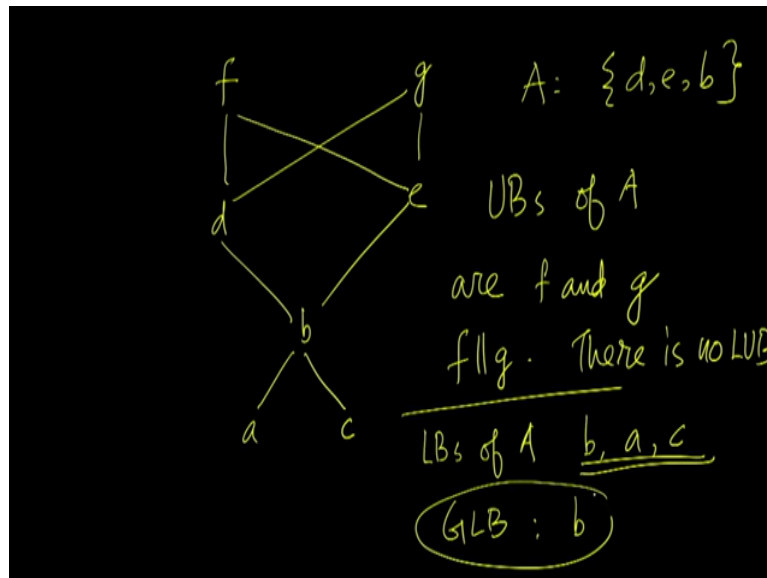 f g
A: {d,e,b}
d e
UBs of A
are f and g
b
f||g. There is no LUB
a c
LBs of A b, a, c
GLB : b